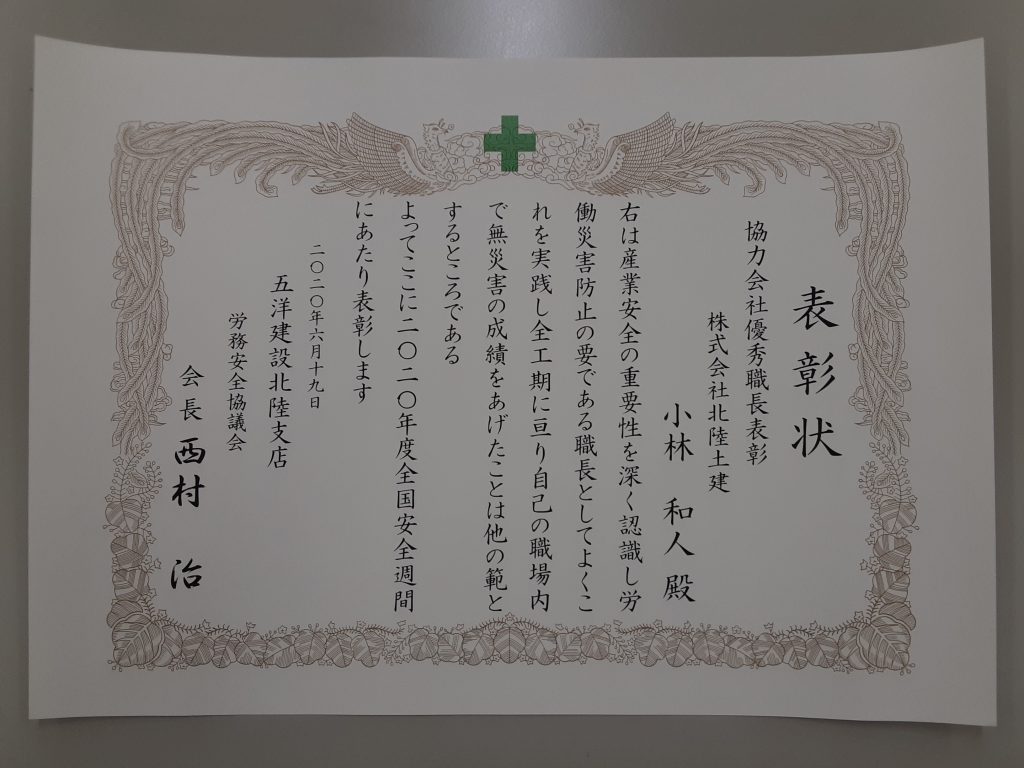 表彰状
協力会社優秀職長表彰
株式会社北陸土建
小林 和人 殿
右は産業安全の重要性を深く認識し労
働災害防止の要である職長としてよくこ
れを実践し全工期に亘り自己の職場内
で無災害の成績をあげたことは他の範と
するところである
よってここに二〇二〇年度全国安全週間
にあたり表彰します
二〇二〇年六月十九日
五洋建設北陸支店
労務安全協議会
会長 西村 治